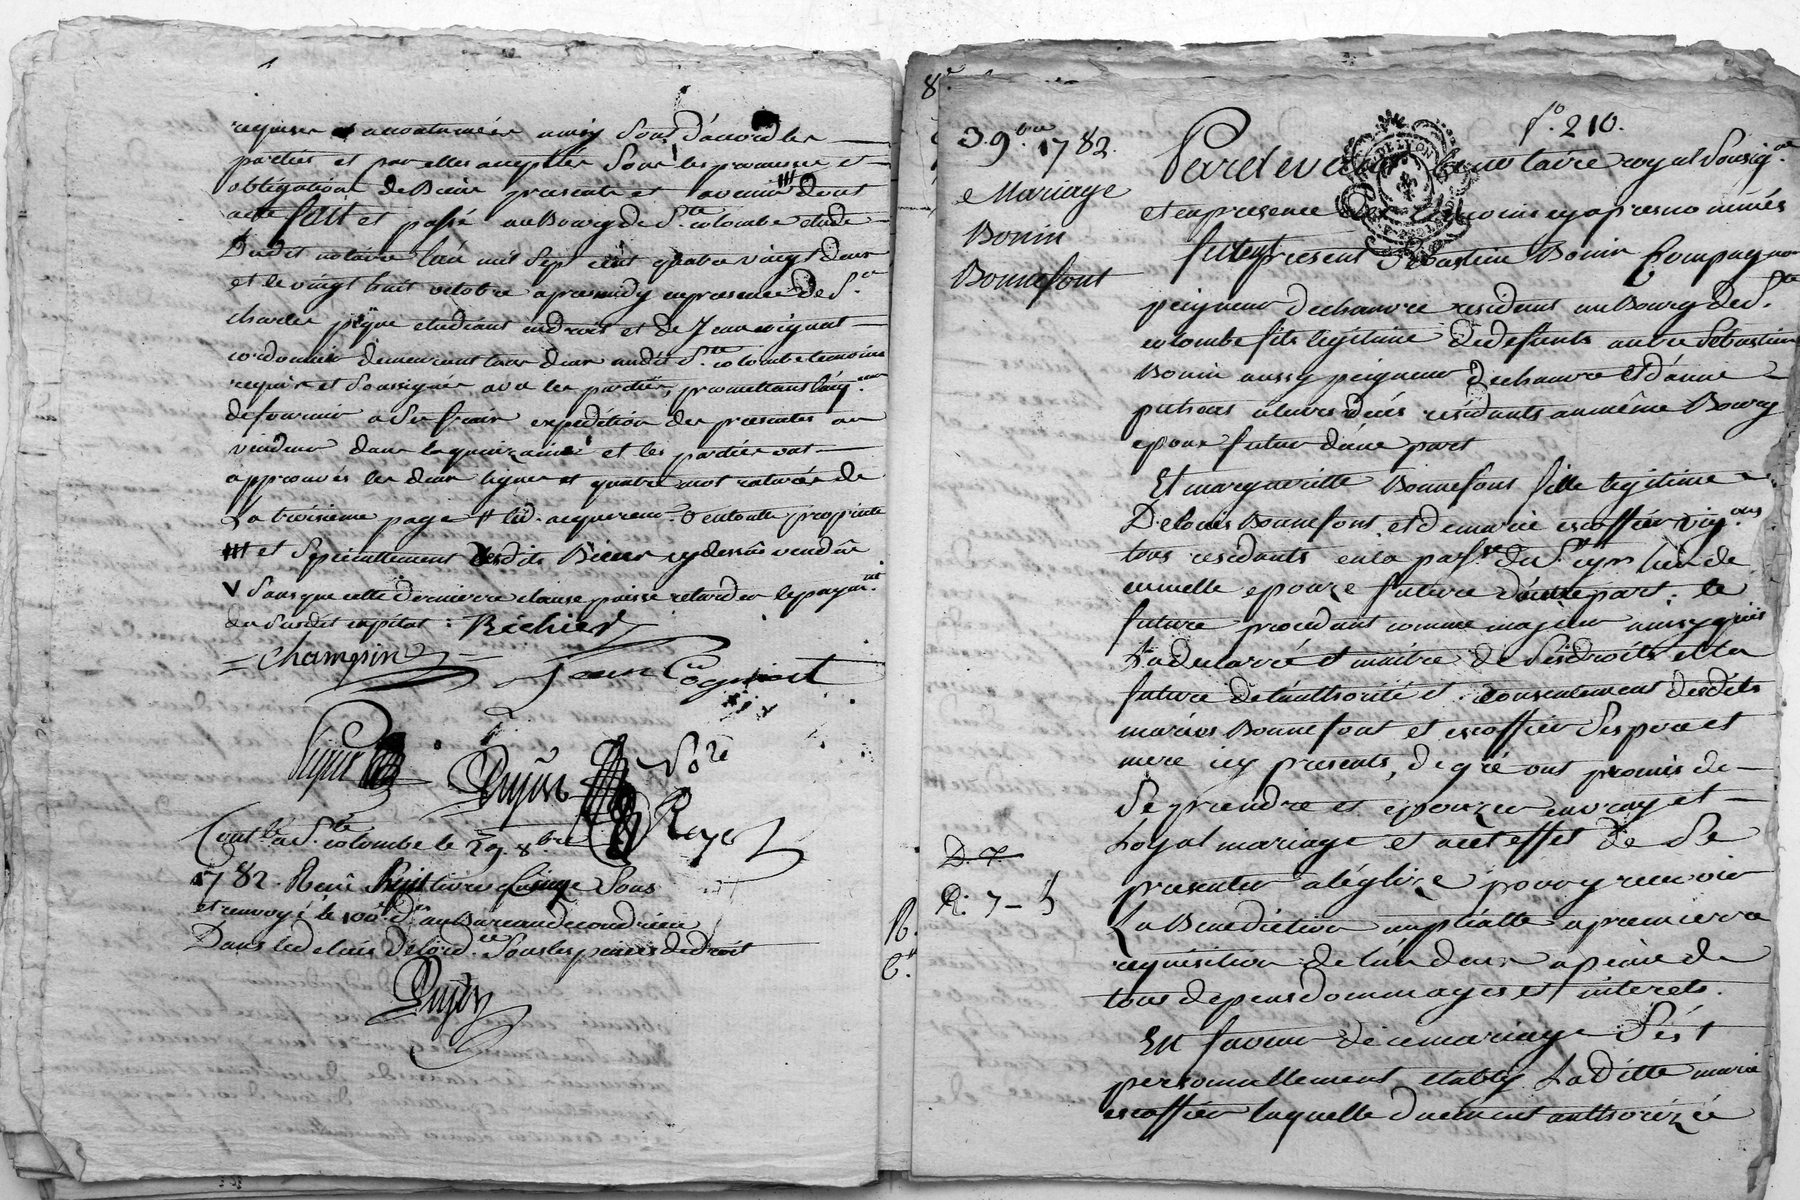 requises et accoutumées ainsy sont d'accord les
parties et par elles acceptées sous les promesses et
obligations de Biens presents et avenir ### dont
acte fait et passé au Bourg de Ste colombe etude
Dudit notaire l'an mil sept cent quatre vingt deux
et le vingt huit octobre apresmidy en presence de Sr
charles etudiant en droit et de Jean cognat
cordonnier demeurant tous deux audit Ste colombe temoins
requis et soussignés avec les parties, promettant
de fournir a ses frais expedition des presentes au
vendeur dans la quinzaine et les parties ont
approuvés les deux lignes et quatre mot raturés de
La troisieme page # led. acquereur
### et specialement desdits Biens cy dessus vendûs
V Sans que cette derniere clause puisse retarder le payemt
du susdit capital : Richier
Champin Jean Cogniat
Dujas Nore
Royo
Contlé a Ste colombe le 29. 8bre
1782. Recu livres Sous
et renvoyé le 100e dr au Bureau de condrieu
Dans les delais de l'ordce sous les peines de Droit
Dujas
8e
fo. 210.
3 9bre 1782.
Mariage
Bonin
Bonnefont
DE LYON
Pardevant le notaire royal soussigné
et en presence des temoins cy apres nommés
fut present Sebastien Bonin Compagnon
peigneur de chanvre residant au Bourg de Ste
colombe fils legitime de defunts autre Sebastien
Bonin aussy peigneur de chanvre et d'anne
residants au même Bourg
epoux futur d'une part
Et margueritte Bonnefont fille legitime
De louis Bonnefont et de marie escoffier
tous residants en la parsse du St cyr lieu de
epouze future d'autre part. le
futur procedant comme majeur ainsy qu'il
l'a declaré et maitre de ses droits et la
future de l'authorité et consentement desdits
mariés Bonnefont et escoffier ses pere et
mere icy presents, de gré ont promis de
se prendre et epouzer en vray et
Loyal mariage et a cet effet de se
presenter a l'église pour y recevoir
La Benediction nuptialle a premierre
requisition de l'un d'eux a peine de
tous depens dommages et interets.
En faveur de ce mariage s'est
personnellement etably Laditte marie
escoffier laquelle duement authorizée
D. 7.
R. 7 - 5
R.